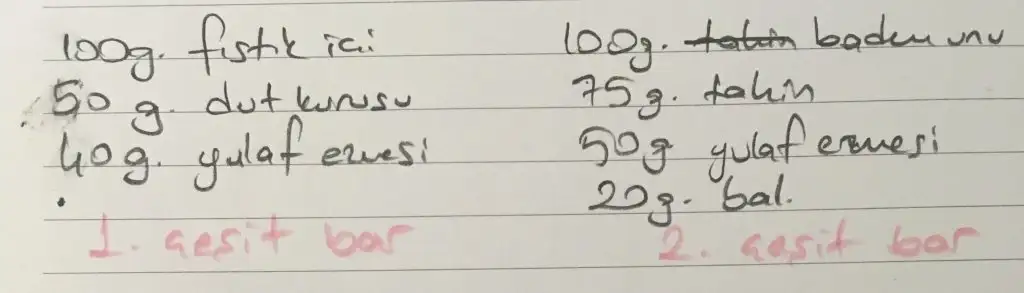 100g. fıstık içi
50 g. dut kurusu
40g. yulaf ezmesi
.
1. çeşit bar
100g. tahin badem unu
75g. tahin
50g yulaf ezmesi
20g. bal.
2. çeşit bar